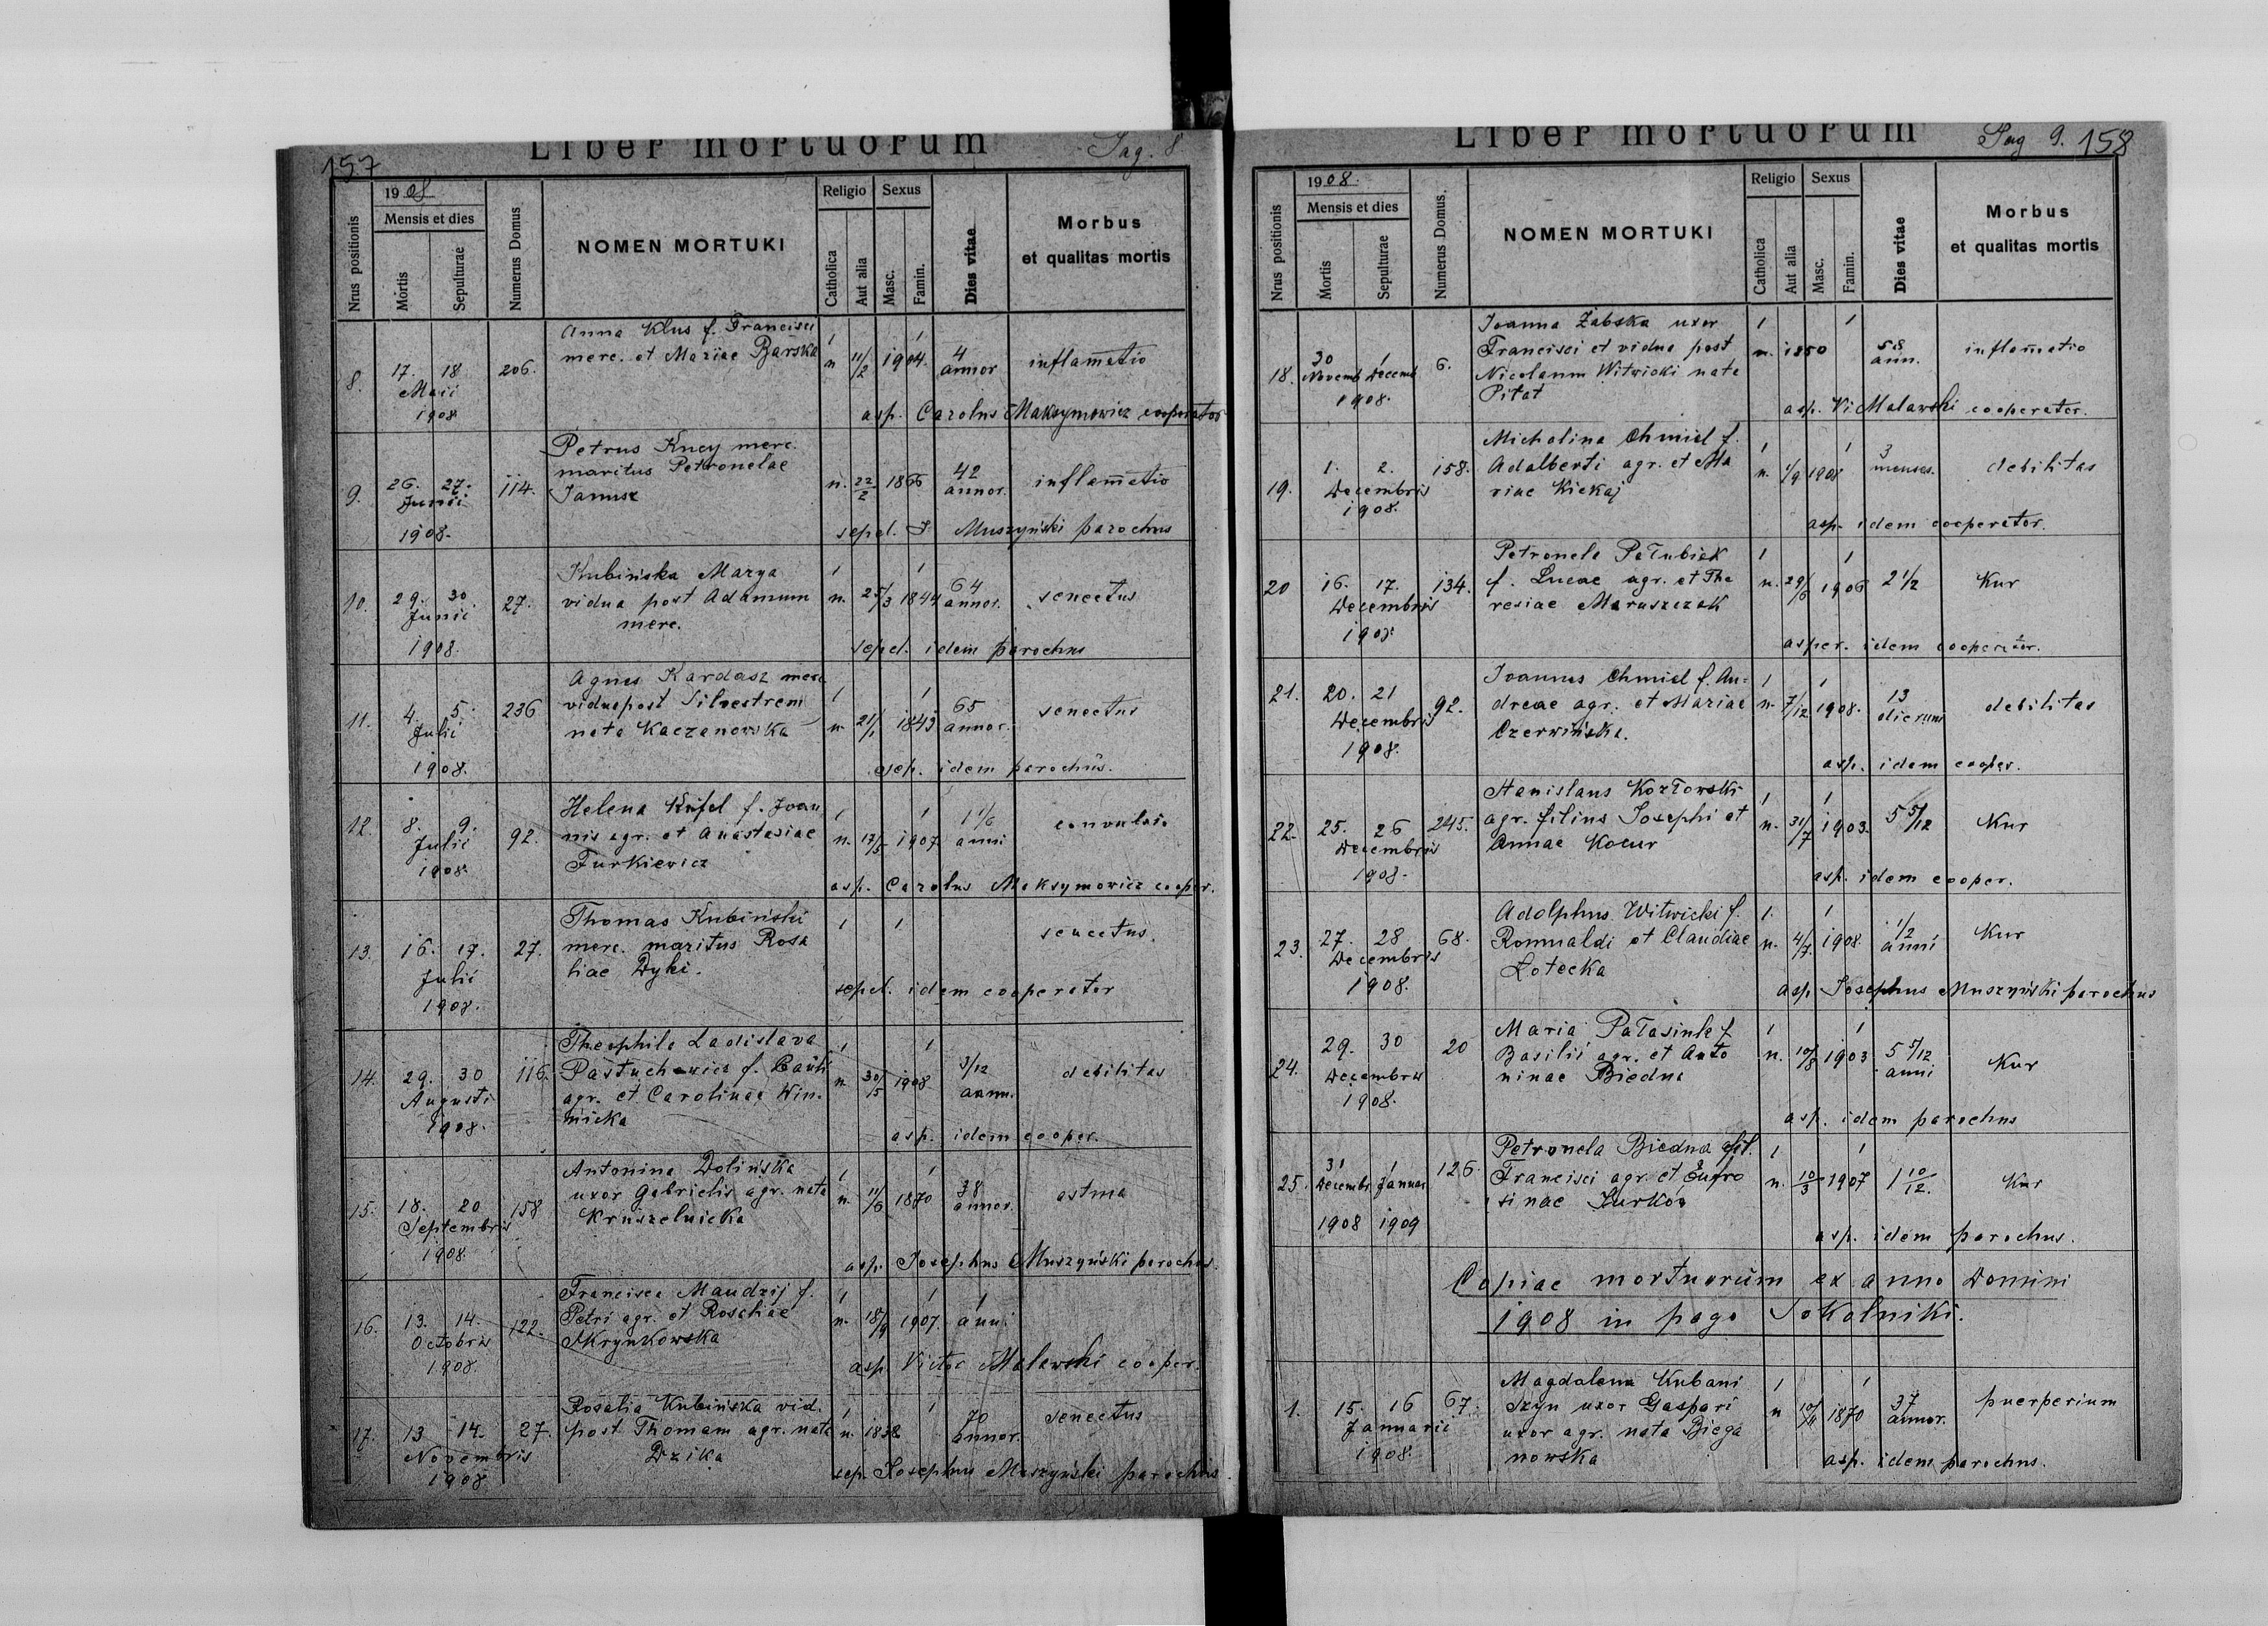 157
Liber mortuorum
Pag. 8
1908
Religio
Sexus
Nrus positionis
Mensis et dies
Mortis
Sepulturae
Numerus Domus
NOMEN MORTUKI
Catholica
Aut alia
Masc.
Famin.
Dies vitae
Morbus
et qualitas mortis
Anna Klus f. Francisci
8. 17. 18 206. merc. et Mariae Barska 1 n 11/2 1904. 1 4 annor inflam̄atio
Maii
1908
asp. Carolus Maksymowicz cooperator
Petrus Kucy merc.
maritus Petronelae
9. 26. 27. 114. Janusz n. 22/2 1866 42 annor. inflam̄atio
Junii
1908.
sepel. J Muszyński parochus
Kubińska Marya
10. 29. 30. 27. vidua post Adamum 1 n. 25/3 1844 1 64 annor. senectus
Junii
merc.
1908.
sepel. idem parochus
Agnes Kardasz merc
11. 4. 5. 236 vidua post Silvestrem 1 n 21/1 1843 1 65 annor. senectus
Julii
nata Kaczanowska
1908.
sep. idem parochus.
Helena Kufel f. Joan
12. 8. 9. 92. nis agr. et Anastasiae 1 n. 17/5 1907 1 1 1/6 anni convulsio
Julii
Turkiewicz
1908.
asp. Carolus Maksymowicz cooper.
Thomas Kubiński
13. 16. 17. 27. merc. maritus Rosa 1 1 senectus.
liae Dyki.
Julii
1908.
sepel. idem cooperator
Theophila Ladislava
14. 29. 30 116. Pastuchewicz f. Pauli 1 n. 30/5 1908 1 3/12 annu. debilitas
Augusti
agr. et Carolinae Win
nicka
1908.
asp. idem cooper.
Antonina Dolińska
uxor Gabrielis agr. nata
15. 18. 20 158 Kruszelnicka 1 n. 11/6 1870 1 38 annor. astma
Septembris
1908
asp. Josephus Muszyński parochus.
Francisca Maudzij f.
16. 13. 14. 122. Petri agr. et Rosaliae 1 n. 18/9 1907. 1 1 anni
Octobris
Skrynkowska
1908.
asp. Victor Malawski cooper.
Rosalia Kubińska vid.
17. 13 14. 27. post Thomam agr. nata 1 n. 1838 1 70 annor. senectus
Novembris
Dzika
1908
sep. Josephus Muszyński parochus
Liber mortuorum
Pag 9. 158
1908.
Religio
Sexus
Nrus positionis
Mensis et dies
Mortis
Sepulturae
Numerus Domus.
NOMEN MORTUKI
Catholica
Aut alia
Masc.
Famin.
Dies vitae
Morbus
et qualitas mortis
Joanna Żabska uxor
Francisci et vidua post
18. 30 Novemb 1 Decemb 6. Nicolaum Witwicki nata 1 n. 1850 1 58 ann. inflam̄atio
Pitat
1908.
asp. Vi Malawski cooperator.
Micholina Chmiel f.
19. 1. 2. 158. Adalberti agr. et Ma 1 n. 1/9 1908 1 3 menses. debilitas
Decembris
riae Kiekaj
1908.
asp. idem cooperator.
Petronela Pałubiek
20 16. 17. 134. f. Lucae agr. et The 1 n. 29/6 1906 1 2 1/2 Kur
Decembris
resiae Maruszczak
1908.
asper. idem cooperator.
Joannes Chmiel f. An=
21. 20. 21 92. dreae agr. et Mariae 1 n. 7/12 1908. 1 13 dierum debilitas
Decembris
Czerwińska.
1908.
asp. idem cooper.
Stanislaus Kozłowski
22. 25. 26 245. agr. filius Josephi et 1 n. 31/7 1903. 1 5 5/12 Kur
Decembris
Annae Kocur
1908.
asp. idem cooper.
Adolphus Witwicki f.
23. 27. 28 68. Romualdi et Claudiae 1. n. 4/7 1908. 1 1/2 anni Kur
Decembris
Łotecka
1908.
asp Josephus Muszyński parochus
Maria Pałasinla f
24. 29. 30 20 Basilii agr. et Anto 1 n. 10/8 1903 1 5 5/12 anni Kur
Decembris
ninae Biedna
1908.
asp. idem parochus
Petronela Biedna fil.
25. 31 Decembr 1 Januar 126. Francisci agr. et Eufro 1 n. 10/3 1907 1 1 10/12. Kur
sinae Kurków
1908 1909
asp. idem parochus.
Copiae mortuorum ex anno Domini
1908 in pago Sokolniki.
Magdalena Kubani
1. 15. 16 67. szyn uxor Gaspari 1 n 10/4 1870 1 37 annor. puerperium
Januarii
uxor agr. nata Biega
1908.
nowska
asp. idem parochus.